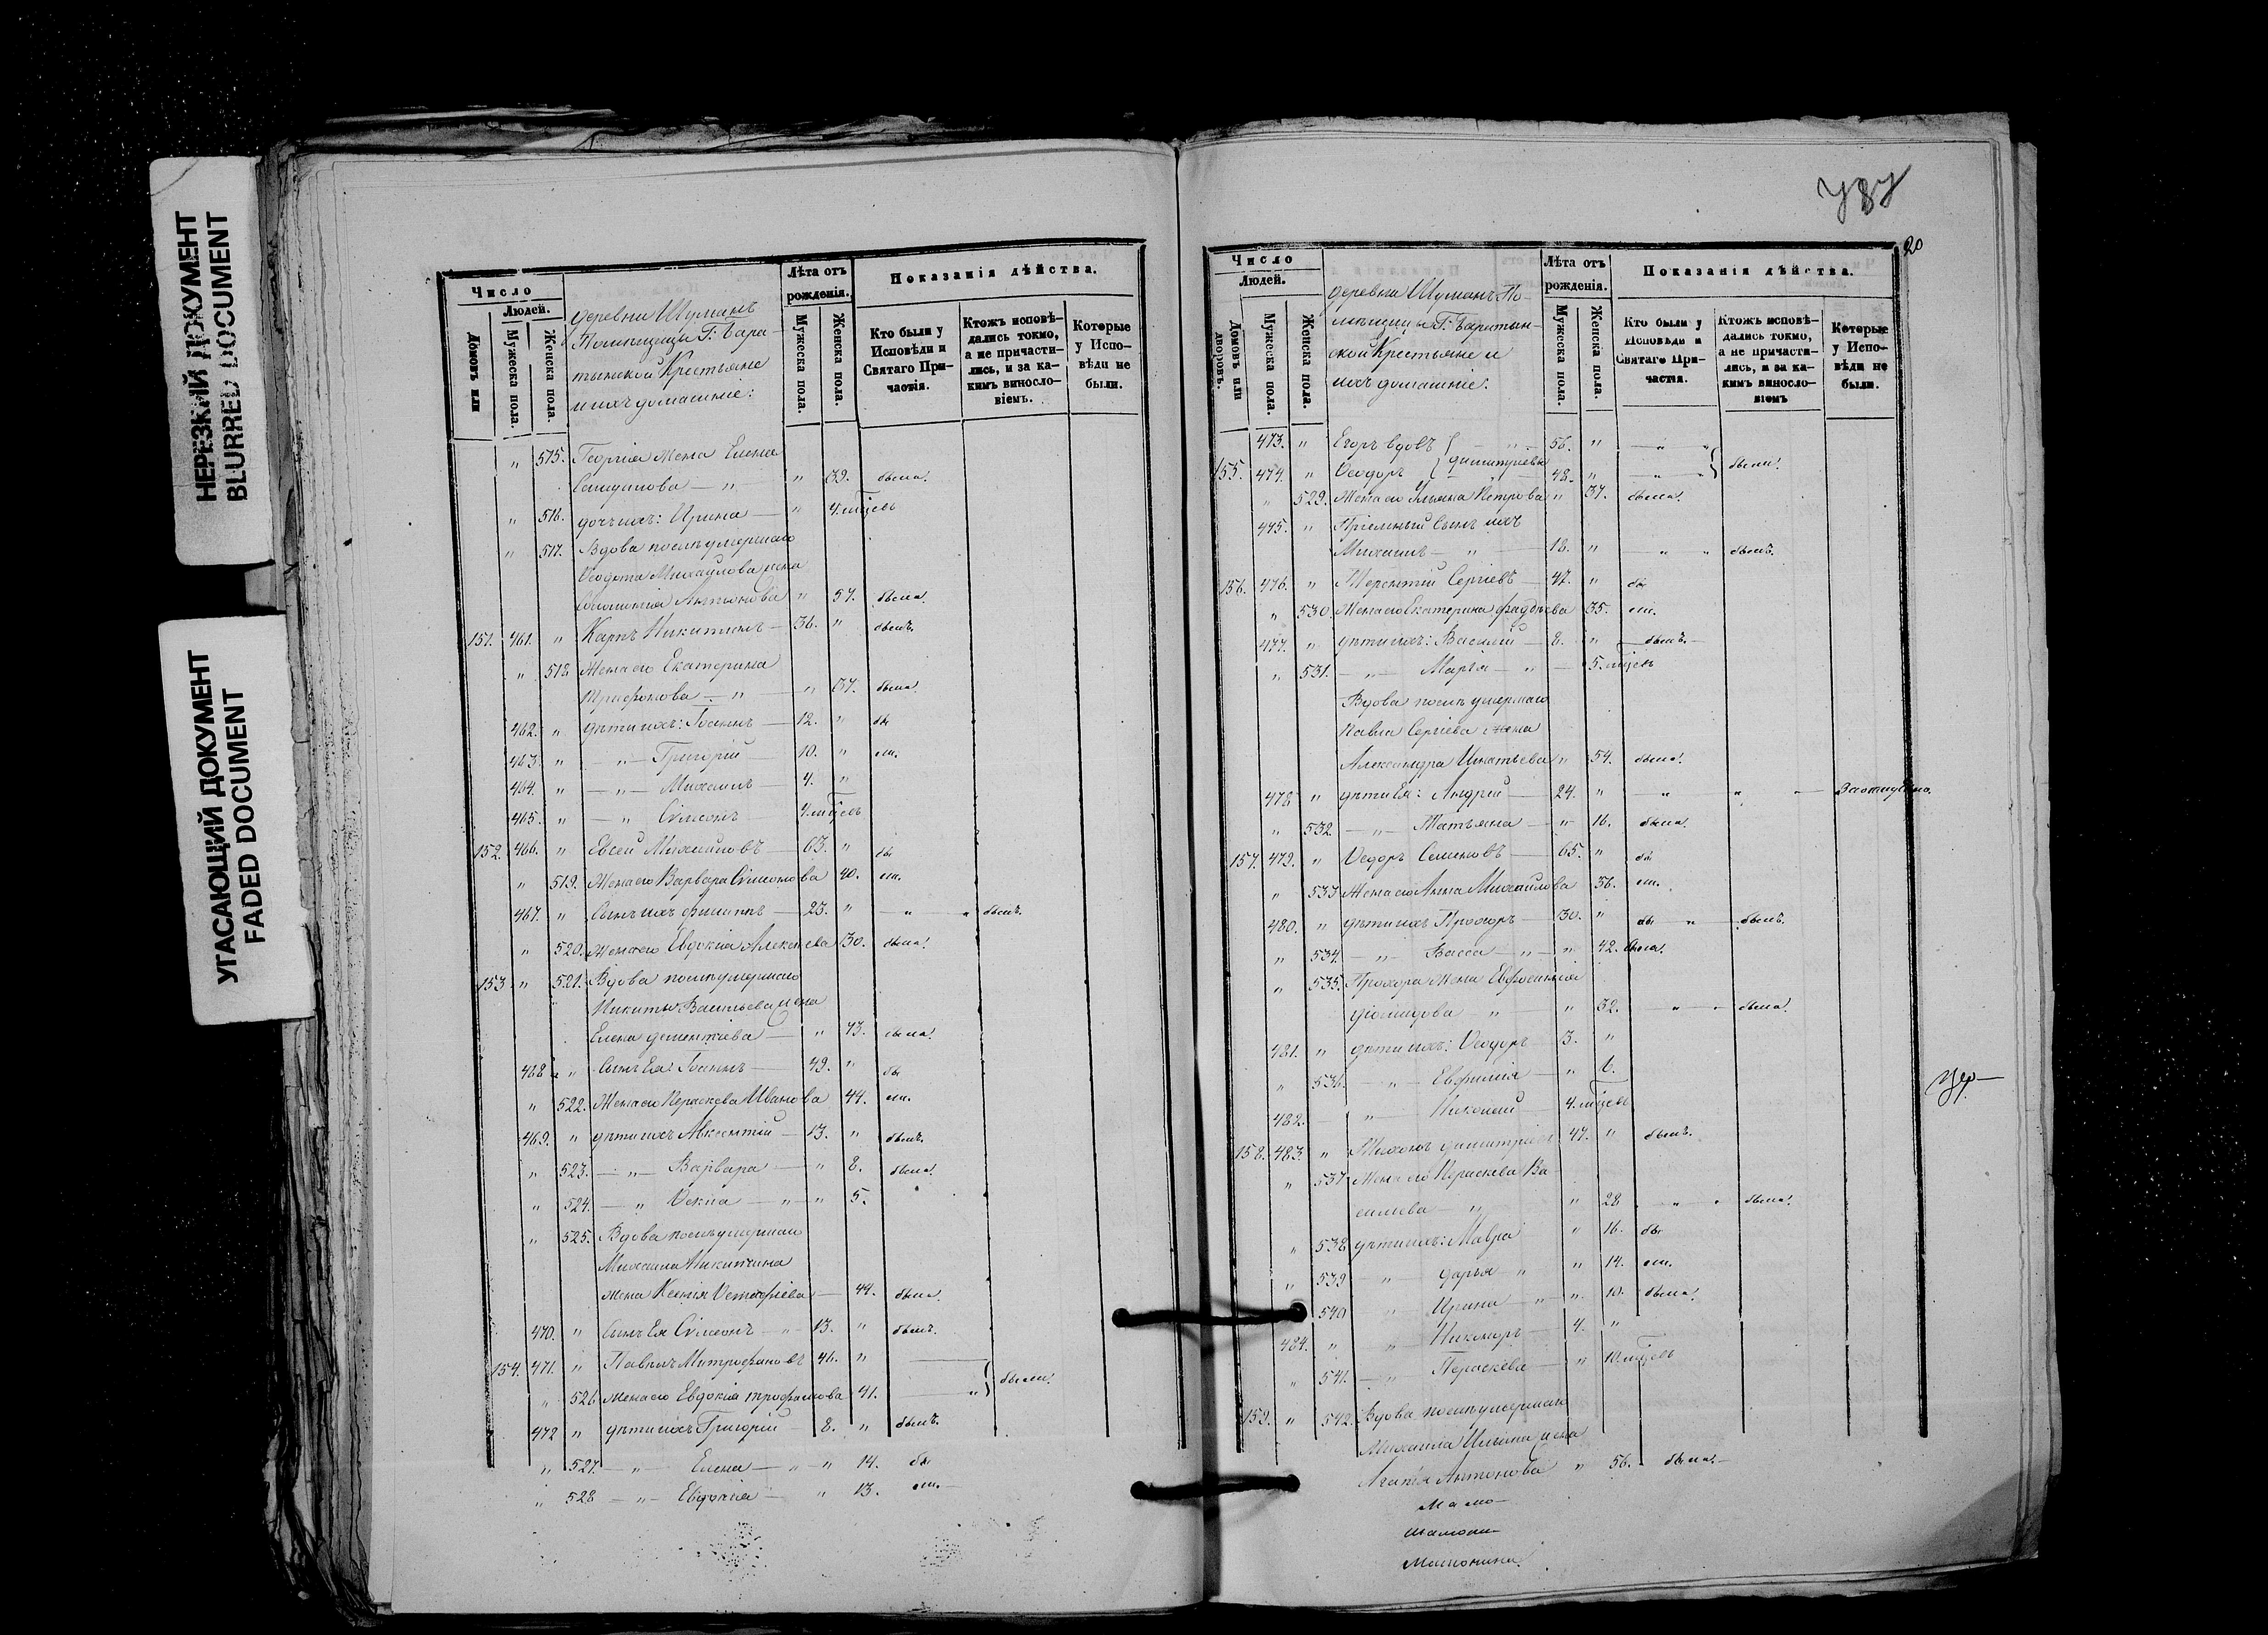 НЕРЕЗКИЙ ДОКУМЕНТ
BLURRED DOCUMENT
УГАСАЮЩИЙ ДОКУМЕНТ
FADED DOCUMENT
Число
Людей.
Домовъ или
Мужеска пола.
Женска пола.
деревни Шуманъ
Помѣщицы Г: Бара-
тынской Крестьяне
и ихъ домашніе:
Лѣта отъ
рожденія.
Мужеска пола.
Женска пола.
Показанія дѣйства.
Кто были у
Исповѣди и
Святаго При-
частія.
Ктожъ исповѣ-
дались токмо,
а не причасти-
лись, и за ка-
кимъ винosло-
віемъ.
Которые
у Испо-
вѣди не
были.
" 515. Георгія жена Елена
" 39. была.
" 516. дочь ихъ: Ирина — " 4. мцѣв
" 517. Вдова послѣ умершаго
Ѳеодота Михайлова жена
Соломонія Антонова " 57. была.
151. 461. " Карпъ Никитинъ — 36. " былъ.
" 518 Жена его Екатерина
Трифонова — " — " 37. была.
462. " дѣти ихъ: Іоаннъ — 12. " бы
463. " — " — Григорій 10. " ли.
464. " — " — Михаилъ — 4. "
465. " — " Сѵмеонъ 4. мцѣв
152. 466. " Евсей Михайловъ — 63. " бы
" 519. Жена его Варвара Сѵмеонова 40. ли.
467. " Сынъ ихъ Филиппъ — 23. " — " " былъ.
" 520. Жена его Евдокія Алексѣева 30. была.
153 " 521. Вдова послѣ умершаго
Никиты Васильева жена
Елена Дементіева — " 73. была.
468 " Сынъ Ея: Іоаннъ — 49. " бы
" 522. Жена его Параскева Иванова 44. ли.
469. " дѣти ихъ Авксентій — 13. " былъ.
" 523. — " — Варвара — " 8. была.
" 524. — " Ѳекла — " — " 5.
" 525. Вдова послѣ умершаго
Михаила Никитина
жена Ксенія — 44. была.
470. " Сынъ Ея Сѵмеонъ — " 13. " былъ.
154. 471. " Павелъ Митрофановъ 46. "
" 526 жена его Евдокія Трофимова 41. " были.
472 " дѣти ихъ Григорій — 8. " былъ.
" 527. — " — Елена — " — " 14. бы
" 528 — " — Евдокія — " 13. ли.
787
20
Число
Людей.
Домовъ или
дворовъ.
Мужеска пола.
Женска пола.
деревни Шуманъ По-
мѣщицы Г: Баратын-
ской Крестьяне и
ихъ домашніе:
Лѣта отъ
рожденія.
Мужеска пола.
Женска пола.
Показанія дѣйства.
Кто были у
Исповѣди и
Святаго При-
частія.
Ктожъ исповѣ-
дались токмо,
а не причасти-
лись, и за ка-
кимъ винosло-
віемъ
Которые
у Испо-
вѣди не
были.
473. " Егоръ вдовъ — " — 56. " — " "
155. 474. " Ѳеодоръ Димитріевы 48. " — " " были.
" 529. Жена его Ульяна Петрова " 37. была.
475. " Пріемный Сынъ ихъ
Михаилъ — " — 18. " — " " былъ.
156. 476. " Терентій Сергіевъ — 47. " бы
" 530. Жена его Екатерина Фаддѣева 35. ли.
477. " дѣти ихъ: Василій — 8. " — былъ. —
" 531. — " — Марія — " — 5. мцѣв
Вдова послѣ умершаго
Павла Сергіева жена
Александра Игнатьева " 54. была.
478 " дѣти Ея: Андрей — 24. " — " " —
" 532 — " — Татьяна — " 16. была.
157. 479. " Ѳедоръ Семеновъ — 65. " бы
" 533 Жена его Анна Михайлова 56. ли.
480. " дѣти ихъ Прохоръ — 30. " бы " былъ.
" 534. — " — Васса — " — " 42. была.
" 535. Прохора жена Евфросинія
Діомидова — " — " 32. — " " была.
481. " дѣти ихъ: Ѳеодоръ 3. "
" 536. — " — Евфимія — " 6.
482. — " — Николай — 4. мцѣв
158. 483. " Димитріевъ 47. " былъ.
" 537 Жена его Параскева Ва-
силіева — " " 28 — " " была.
" 538 дѣти ихъ: Мавра " 16. бы
" 539 " Дарья " " 14. ли.
" 540 " Ирина — " " 10. была.
484. " " Никаноръ — 4. "
" 541. — " Параскева — " 10. мцѣв
159. " 542. Вдова послѣ умершаго
Михаила Ильина жена
Агафія Антонова " 56. была. —